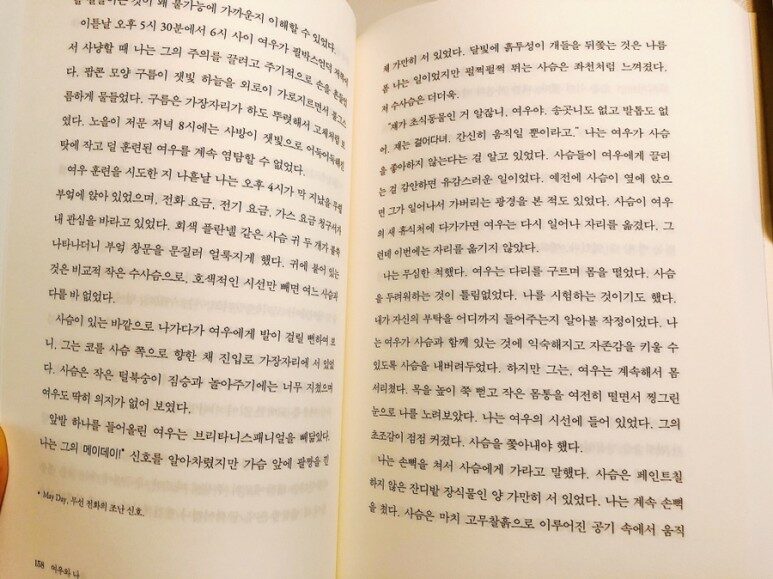 것이 왜 불가능에 가까운지 이해할 수 있었다.
이튿날 오후 5시 30분에서 6시 사이 여우가 필박스언덕
서 사냥할 때 나는 그의 주의를 끌려고 주기적으로 손을 흔들었
다. 팝콘 모양 구름이 잿빛 하늘을 외로이 가로지르면서 불그스
름하게 물들었다. 구름은 가장자리가 하도 뚜렷해서 고체처럼 보
였다. 노을이 저문 저녁 8시에는 사방이 잿빛으로 어둑어둑해진
탓에 작고 덜 훈련된 여우를 계속 염탐할 수 없었다.
여우 훈련을 시도한 지 나흘날 나는 오후 4시가 막 지났을 무렵
부엌에 앉아 있었으며, 전화 요금, 전기 요금, 가스 요금 청구서가
내 관심을 바라고 있었다. 회색 플란넬 같은 사슴 귀 두 개가 불쑥
나타나더니 부엌 창문을 문질러 얼룩지게 했다. 귀에 붙어 있는
것은 비교적 작은 수사슴으로, 호색적인 시선만 빼면 여느 사슴과
다를 바 없었다.
사슴이 있는 바깥으로 나가다가 여우에게 발이 걸릴 뻔하여 보
니, 그는 코를 사슴 쪽으로 향한 채 진입로 가장자리에 서 있었
다. 사슴은 작은 털북숭이 짐승과 놀아주기에는 너무 지쳤으며
여우도 딱히 의지가 없어 보였다.
앞발 하나를 들어올린 여우는 브리타니스패니얼을 빼닮았다.
나는 그의 메이데이!* 신호를 알아차렸지만 가슴 앞에 팔짱을 낀
* May Day, 무선 전화의 조난 신호.
158 여우와 나
채 가만히 서 있었다. 달빛에 흙투성이 개들을 뒤쫓는 것은 나름
폼 나는 일이었지만 펄쩍펄쩍 뛰는 사슴은 좌천처럼 느껴졌다.
저 수사슴은 더더욱.
"쟤가 초식동물인 거 알잖니, 여우야. 송곳니도 없고 발톱도 없
어. 쟤는 걸어다녀. 간신히 움직일 뿐이라고." 나는 여우가 사슴
을 좋아하지 않는다는 걸 알고 있었다. 사슴들이 여우에게 끌리
는 걸 감안하면 유감스러운 일이었다. 예전에 사슴이 옆에 앉으
면 그가 일어나서 가버리는 광경을 본 적도 있었다. 사슴이 여우
의 새 휴식처에 다가가면 여우는 다시 일어나 자리를 옮겼다. 그
런데 이번에는 자리를 옮기지 않았다.
나는 무심한 척했다. 여우는 다리를 구르며 몸을 떨었다. 사슴
을 두려워하는 것이 틀림없었다. 나를 시험하는 것이기도 했다.
내가 자신의 부탁을 어디까지 들어주는지 알아볼 작정이었다. 나
는 여우가 사슴과 함께 있는 것에 익숙해지고 자존감을 키울 수
있도록 사슴을 내버려두었다. 하지만 그는, 여우는 계속해서 몸
서리쳤다. 목을 높이 쭉 뻗고 작은 몸통을 여전히 떨면서 찡그린
눈으로 나를 노려보았다. 나는 여우의 시선에 들어 있었다. 그의
초조감이 점점 커졌다. 사슴을 쫓아내야 했다.
나는 손뼉을 쳐서 사슴에게 가라고 말했다. 사슴은 페인트칠
하지 않은 잔디밭 장식물인 양 가만히 서 있었다. 나는 계속 손뼉
을 쳤다. 사슴은 마치 고무찰흙으로 이루어진 공기 속에서 움직